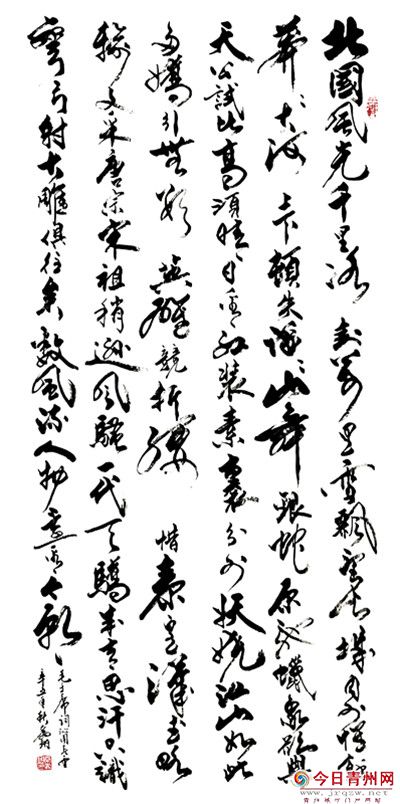 北國風光千里冰封萬里雪飄望長城內外惟餘
莽莽大河上下頓失滔滔山舞銀蛇原馳蠟象欲與
天公試比高須晴日看紅裝素裹分外妖嬈江山如此
多嬌引無數英雄競折腰惜秦皇漢武略
輸文采唐宗宋祖稍遜風騷一代天驕成吉思汗只識
彎弓射大雕俱往矣數風流人物還看今朝
毛主席詞沁園春雪
辛丑年秋
今日青州网
www.jrqzw.net